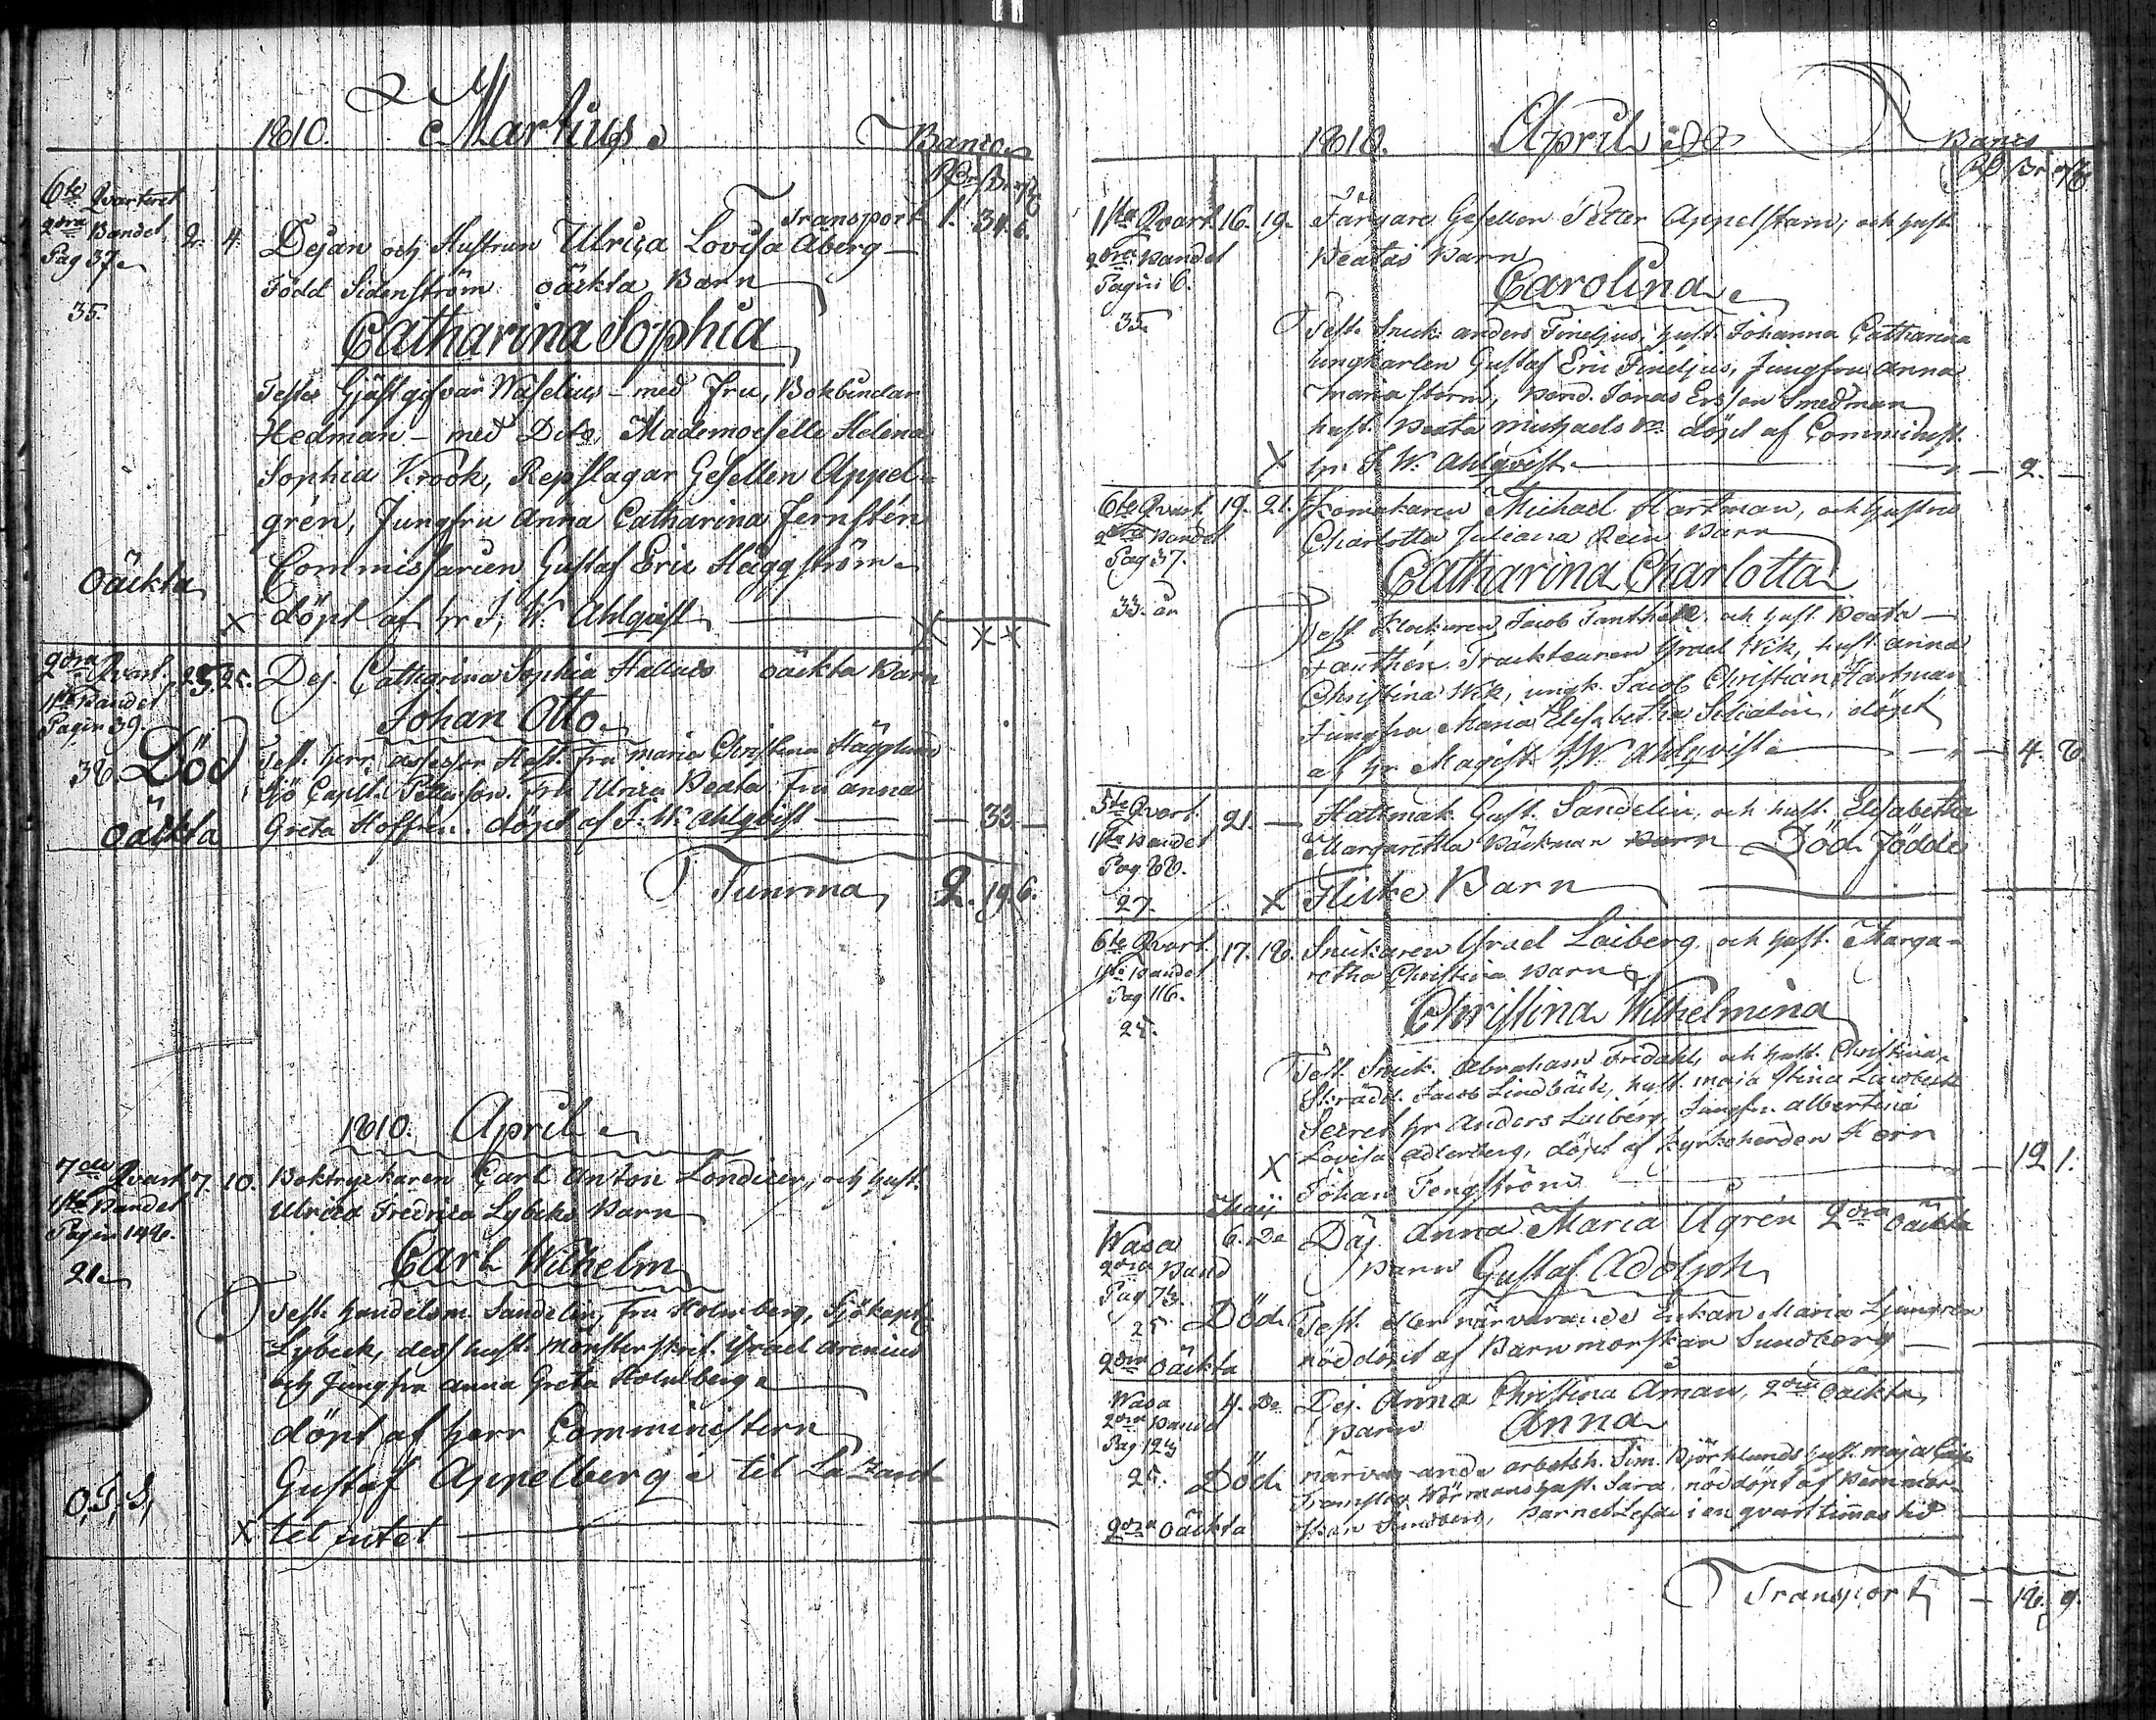 1810. Martius.
Banco
6te Qvarteret
2dra Bandet
Pag 37.
35.
Transport 1. 34. 6.
2. 4. Dejan och Hustrun Ulrica Lovisa Åberg
Född Sidenström oäckta Barn
Catharina Sophia
Testes Gjästgifvar Waselius med Fru, Bokbindar
Hedman med Dito, Mademoiselle Helena
Sophia Krook, Repslagar Gesellen Appel-
grén, Jungfru Anna Catharina Jernstén
Commissarien Gustaf Eric Häggström
Oäckta
X döpt af hr J. W. Ahlqvist X X X
2dra Qvart.
1sta Bandet
Pagin 39.
38. Död
Oäckta
25. Dej. Catharina Sophia Hallmes oäckta Barn
Johan Otto.
Test. herr assessor Hast. Fru Maria Christina Hägglund
Sjö Capit. Petterson. Fru Ulrica Beata Fru Anna
Greta Hoffrén. döpt af J. W. Ahlqvist — 33. —
Summa 2. 19. 6.
1810. April
7de Qvart.
1sta Bandet
Pagin 148.
21.
7. 10. Boktryckaren Carl Anton Londicer, och hust.
Ulrica Fredrica Lybecks Barn
Carl Wilhelm
Test. handelsm. Sandelin, Fru Holmberg, Sjökapit.
Lybeck, dess hust. Mönsterskrif. Israel Arenius
och Jungfru Anna Greta Holmberg
döpt af herr Comministern
Gustaf Appelberg
X til intet
1810. April
Banco
1sta Qvart.
2dra Bandet
Pagin 6.
35
16. 19. Färgare Gesellen Petter Appelstam, och hust.
Beatas Barn
Carolina
Test. Snick. Anders Finelius, hust. Johanna Catharina
ungkarlen Gustaf Eric Finelius, Jungfru Anna
Maria Storm, Bond. Jonas Ersson Smedman
hust. Beata Michaels dr. döpt af Comminist.
X hr. J. W. Ahlqvist — 2. —
6te Qvart.
2dra Bandet
Pag 37.
33. år
19. 21. Skomakaren Michael Hartman, och hustru
Charlotta Juliana Rein Barn
Catharina Charlotta
Test. Klockaren Jacob Fanthén och hust. Beata
Fanthén. Tracktearen Israel Wik, hust. Anna
Christina Wik, ungk. Jacob Christian Hartman
Jungfru Maria Elisabetha döpt
af hr Magist. J. W. Ahlqvist — 4. 8.
5te Qvart.
1sta Bandet
Pag 88.
27.
21. — Hattmak. Gust. Sandelin, och hust. Elisabetha
Margaretha Bäckman Barn Död Födde
X Flicke Barn
6te Qvart.
1sta Bandet
Pag 116.
25.
17. 18. Snickaren Israel Laiberg och hust. Marga-
retha Christina Barn
Christina Wilhelmina
Test. Snick. Abraham Fredahl, och hust. Christina
Skrädd. Jacob Lindbäck, hust. Maja Stina Lindbeck
Secret. hr Anders Laiberg, Jungfru Albertina
Lovisa Adlerberg, döpt af Kyrkoherden Herr
X Johan Tengström — 12 1.
Maij
Wasa
2dra Band
Pag 73.
25. Död
2dra Oäckta
6. De Däj. Anna Maria Ågrén 2dra Oäckta
Barn Gustaf Adolph
Test. eller närvarande Enkan Maria Ljunggren
nöddöpt af Barnmorskan Sundberg
Wasa
2dra Bandet
Pag 123
25. Död
2dra Oäckta
4. De Dej. Anna Christina Åman, 2dra Oäckta
Barn Anna
närvarande arbetsk. Sim. Björklunds hust. Maja Caisa
Wörmans hust. Sara, nöddöpt af Barnmor-
skan Sundberg, Barnet Lefde i en qvart timmas tid
Transport — 18. 9.